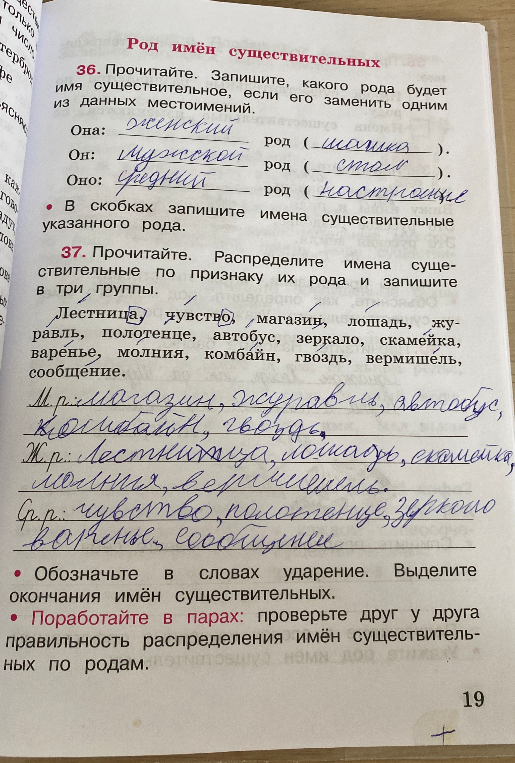 Род имён существительных
36. Прочитайте. Запишите, какого рода будет
имя существительное, если его заменить одним
из данных местоимений.
Она: женский род (шапка).
Он: мужской род (стол).
Оно: средний род (настроение
• В скобках запишите имена существительные
указанного рода.
37. Прочитайте. Распределите имена суще-
ствительные по признаку их рода и запишите
в три группы.
Лестница, чувство, магазин, лошадь, жу-
равль, полотенце, автобус, зеркало, скамейка,
варенье, молния, комбайн, гвоздь, вермишель,
сообщение.
М.р.: магазин, журавль, автобус,
комбайн, гвоздь,
Ж.р.: Лестница, лошадь, скамейка,
молния, вермишель.
Ср.р.: чувство, полотенце, зеркало
варенье, сообщение
• Обозначьте в словах ударение. Выделите
окончания имён существительных.
• Поработайте в парах: проверьте друг у друга
правильность распределения имён существитель-
ных по родам.
19